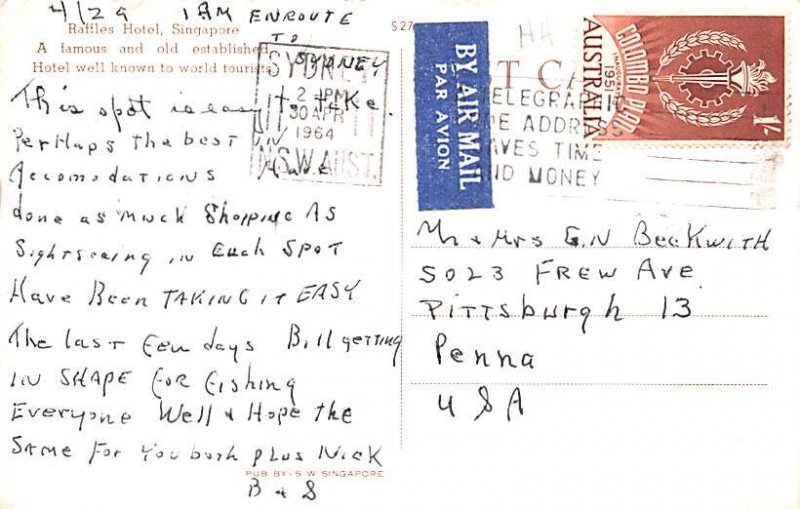 4/29 I AM ENROUTE
TO
SYDNEY
Raffles Hotel, Singapore
A famous and old established
Hotel well known to world tourists
This spot is easy to take.
Perhaps the best in
Accomodations Have
done as much Shopping As
Sightseeing in Each Spot
Have Been TAKING it EASY
The last few days Bill getting
IN SHAPE FOR Fishing
Everyone Well & Hope the
Same For You both plus Nick
B & S
PUB BY-S W SINGAPORE
S 27
SYDNEY
2 - PM
30 APR
1964
N.S.W. AUST.
BY AIR MAIL
PAR AVION
ST CA
TELEGRAPHIC
ADDRESS
SAVES TIME
AND MONEY
COLOMBO PLAN
INAUGURATED
1951
AUSTRALIA
1/-
Mr & Mrs G.N Beckwith
5023 FREW Ave
Pittsburgh 13
Penna
USA